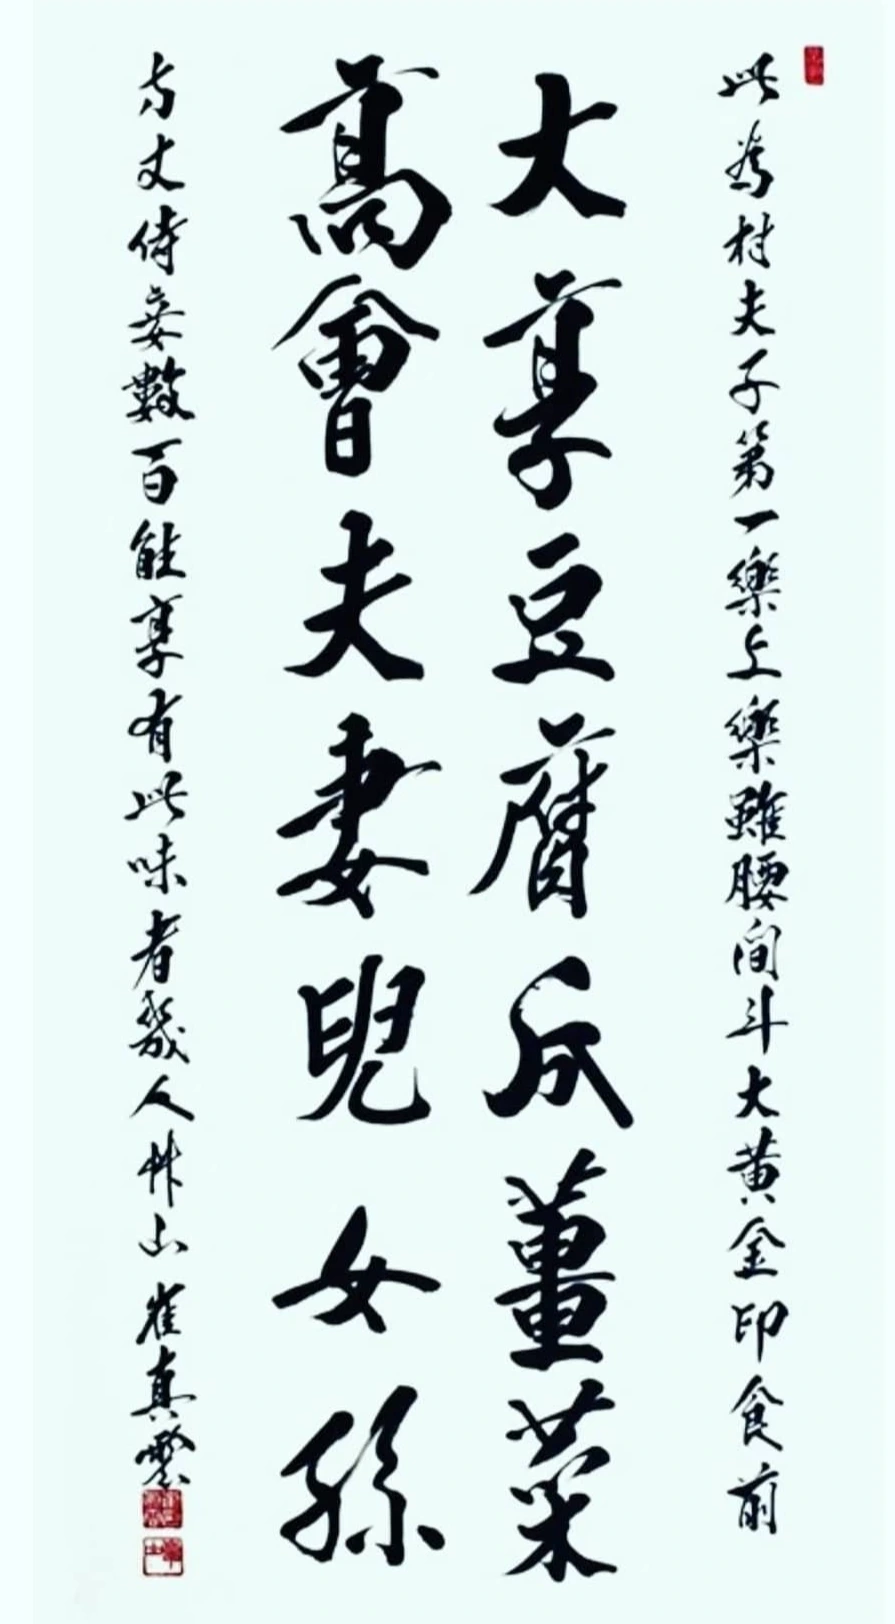 此為村夫子第一樂上樂雖腰間斗大黃金印食前
大享豆腐瓜薑菜
高會夫妻兒女孫
方丈侍妾數百能享有此味者幾人山崔真